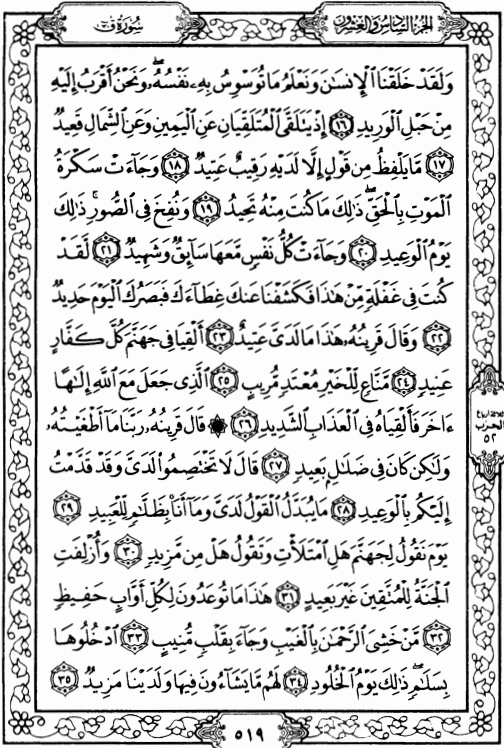 سُورَةُ قٓ
الجُزْءُ السَّادِسُ وَالعِشْرُونَ
وَلَقَدْ خَلَقْنَا ٱلْإِنسَٰنَ وَنَعْلَمُ مَا تُوَسْوِسُ بِهِۦ نَفْسُهُۥۖ وَنَحْنُ أَقْرَبُ إِلَيْهِ
مِنْ حَبْلِ ٱلْوَرِيدِ ١٦ إِذْ يَتَلَقَّى ٱلْمُتَلَقِّيَانِ عَنِ ٱلْيَمِينِ وَعَنِ ٱلشِّمَالِ قَعِيدٌ
١٧ مَّا يَلْفِظُ مِن قَوْلٍ إِلَّا لَدَيْهِ رَقِيبٌ عَتِيدٌ ١٨ وَجَآءَتْ سَكْرَةُ
ٱلْمَوْتِ بِٱلْحَقِّۖ ذَٰلِكَ مَا كُنتَ مِنْهُ تَحِيدُ ١٩ وَنُفِخَ فِى ٱلصُّورِۚ ذَٰلِكَ
يَوْمُ ٱلْوَعِيدِ ٢٠ وَجَآءَتْ كُلُّ نَفْسٍ مَّعَهَا سَآئِقٌ وَشَهِيدٌ ٢١ لَّقَدْ
كُنتَ فِى غَفْلَةٍ مِّنْ هَٰذَا فَكَشَفْنَا عَنكَ غِطَآءَكَ فَبَصَرُكَ ٱلْيَوْمَ حَدِيدٌ
٢٢ وَقَالَ قَرِينُهُۥ هَٰذَا مَا لَدَىَّ عَتِيدٌ ٢٣ أَلْقِيَا فِى جَهَنَّمَ كُلَّ كَفَّارٍ
عَنِيدٍ ٢٤ مَّنَّاعٍ لِّلْخَيْرِ مُعْتَدٍ مُّرِيبٍ ٢٥ ٱلَّذِى جَعَلَ مَعَ ٱللَّهِ إِلَٰهًا
ءَاخَرَ فَأَلْقِيَاهُ فِى ٱلْعَذَابِ ٱلشَّدِيدِ ٢٦ ۞ قَالَ قَرِينُهُۥ رَبَّنَا مَآ أَطْغَيْتُهُۥ
وَلَٰكِن كَانَ فِى ضَلَٰلٍۭ بَعِيدٍ ٢٧ قَالَ لَا تَخْتَصِمُوا۟ لَدَىَّ وَقَدْ قَدَّمْتُ
إِلَيْكُم بِٱلْوَعِيدِ ٢٨ مَا يُبَدَّلُ ٱلْقَوْلُ لَدَىَّ وَمَآ أَنَا۠ بِظَلَّٰمٍ لِّلْعَبِيدِ ٢٩
يَوْمَ نَقُولُ لِجَهَنَّمَ هَلِ ٱمْتَلَأْتِ وَتَقُولُ هَلْ مِن مَّزِيدٍ ٣٠ وَأُزْلِفَتِ
ٱلْجَنَّةُ لِلْمُتَّقِينَ غَيْرَ بَعِيدٍ ٣١ هَٰذَا مَا تُوعَدُونَ لِكُلِّ أَوَّابٍ حَفِيظٍ
٣٢ مَّنْ خَشِىَ ٱلرَّحْمَٰنَ بِٱلْغَيْبِ وَجَآءَ بِقَلْبٍ مُّنِيبٍ ٣٣ ٱدْخُلُوهَا
بِسَلَٰمٍۖ ذَٰلِكَ يَوْمُ ٱلْخُلُودِ ٣٤ لَهُم مَّا يَشَآءُونَ فِيهَا وَلَدَيْنَا مَزِيدٌ ٣٥
الحزب
٥٢
٥١٩